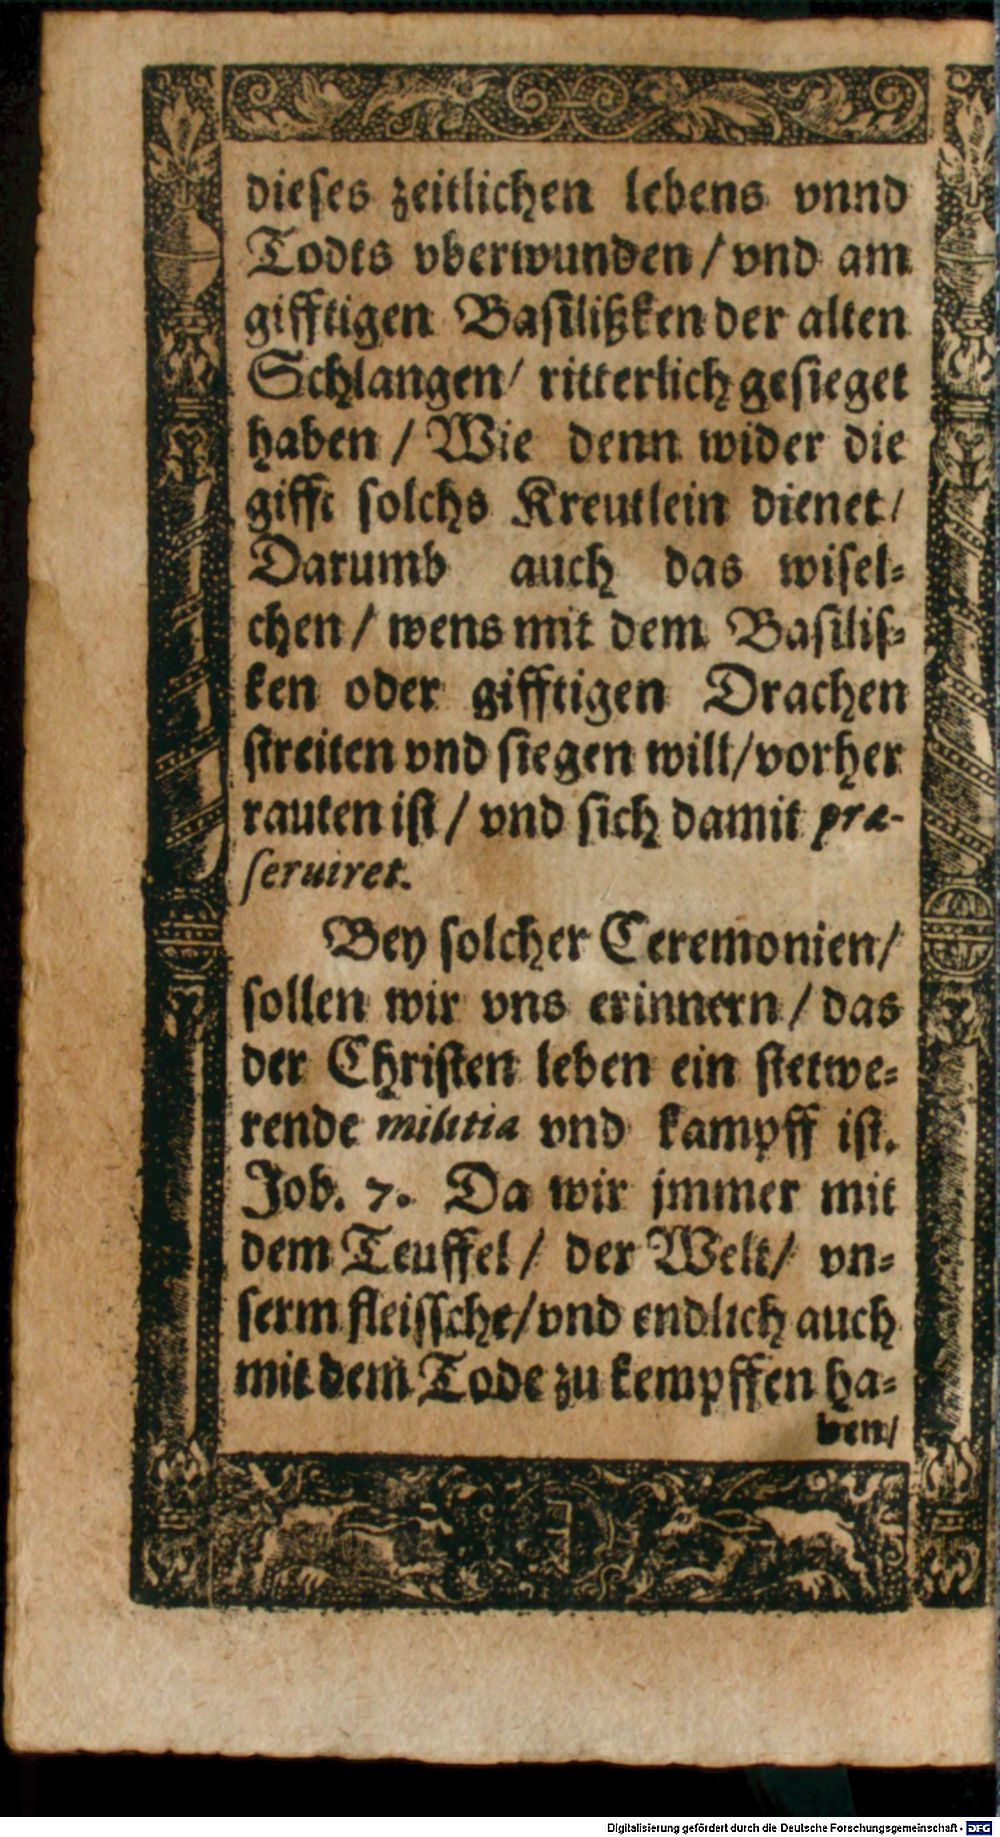 dieses zeitlichen lebens vnnd
Todts vberwunden / vnd am
gifftigen Basilißken der alten
Schlangen / ritterlich gesieget
haben / Wie denn wider die
gifft solchs Kreutlein dienet /
Darumb auch das wisel-
chen / wens mit dem Basilis-
ken oder gifftigen Drachen
streiten vnd siegen will / vorher
rauten ist / vnd sich damit præ-
seruiret.
Bey solcher Ceremonien /
sollen wir vns erinnern / das
der Christen leben ein stetwe-
rende militia vnd kampff ist.
Job. 7. Da wir jmmer mit
dem Teuffel / der Welt / vn-
serm fleissche / vnd endlich auch
mit dem Tode zu kempffen ha-
ben /
Digitalisierung gefördert durch die Deutsche Forschungsgemeinschaft - DFG